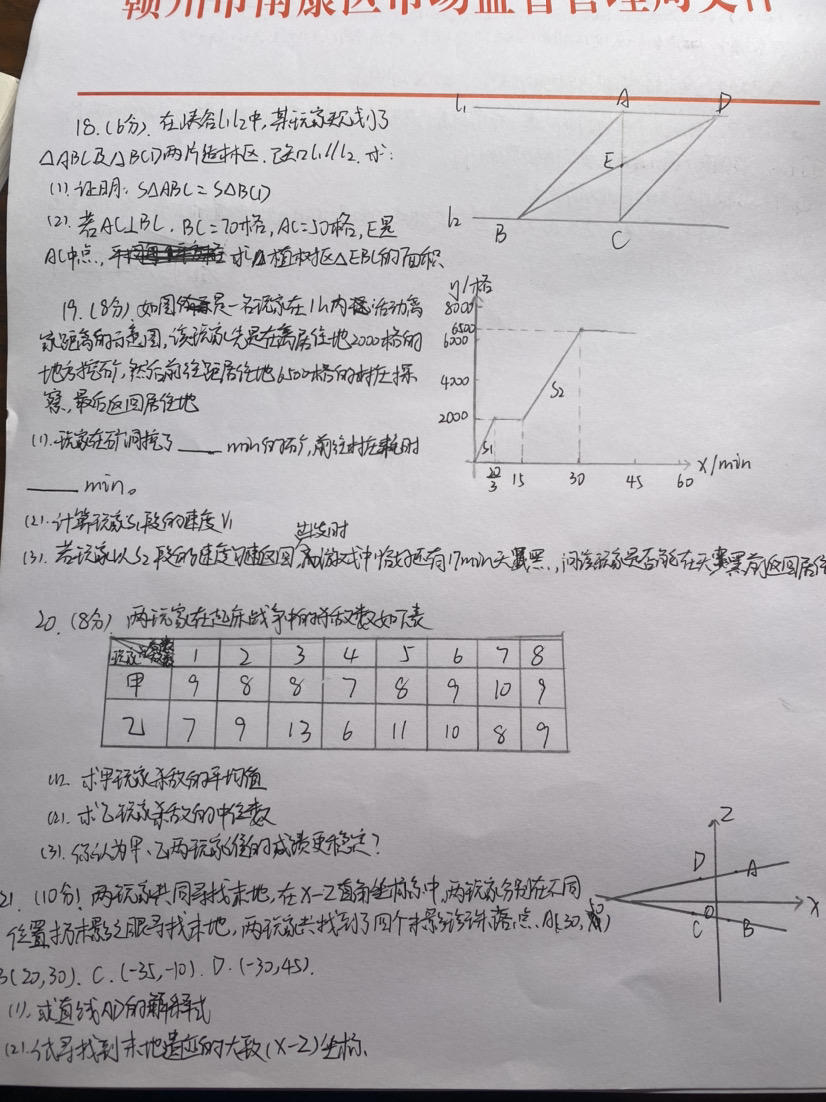 赣州市南康区市场监督管理局文件
18.(6分).在峡谷l₁l₂中,某玩家规划了
△ABC及△BCD两片造林区.已知l₁//l₂.求:
(1).证明:S△ABC=S△BCD
(2).若AC⊥BC.BC=70格,AC=50格,E是
AC中点,求植树区△EBC的面积
l₁
A
D
E
l₂
B
C
19.(8分)如图是一名玩家在1h内活动离
家距离的示意图,该玩家先是在离居住地2000格的
地方挖矿,然后前往距居住地6500格的村庄探
察,最后返回居住地
(1).玩家在矿洞挖了____min的矿,前往村庄耗时
____min。
(2).计算玩家S₁段的速度V₁
(3).若玩家以S₂段的速度返回,出发时游戏中恰好还有17min天黑,问该玩家是否能在天黑前返回居住
y/格
8000
6500
6000
4000
2000
S1
S2
20/3
15
30
45
60
x/min
20.(8分)两玩家在起床战争中的杀敌数如下表
玩家 1 2 3 4 5 6 7 8
甲 9 8 8 7 8 9 10 9
乙 7 9 13 6 11 10 8 9
(1).求甲玩家杀敌的平均值
(2).求乙玩家杀敌的中位数
(3).你认为甲、乙两玩家谁的成绩更稳定?
21.(10分)两玩家共同寻找末地,在X-Z直角坐标系中,两玩家分别在不同
位置扔末影之眼寻找末地,两玩家共找到了四个末影珍珠落点、A(30,
B(20,30).C.(-35,-10).D.(-30,45).
(1).求直线AD的解析式
(2).试寻找到末地遗迹的大致(X-Z)坐标、
Z
D
A
O
X
C
B